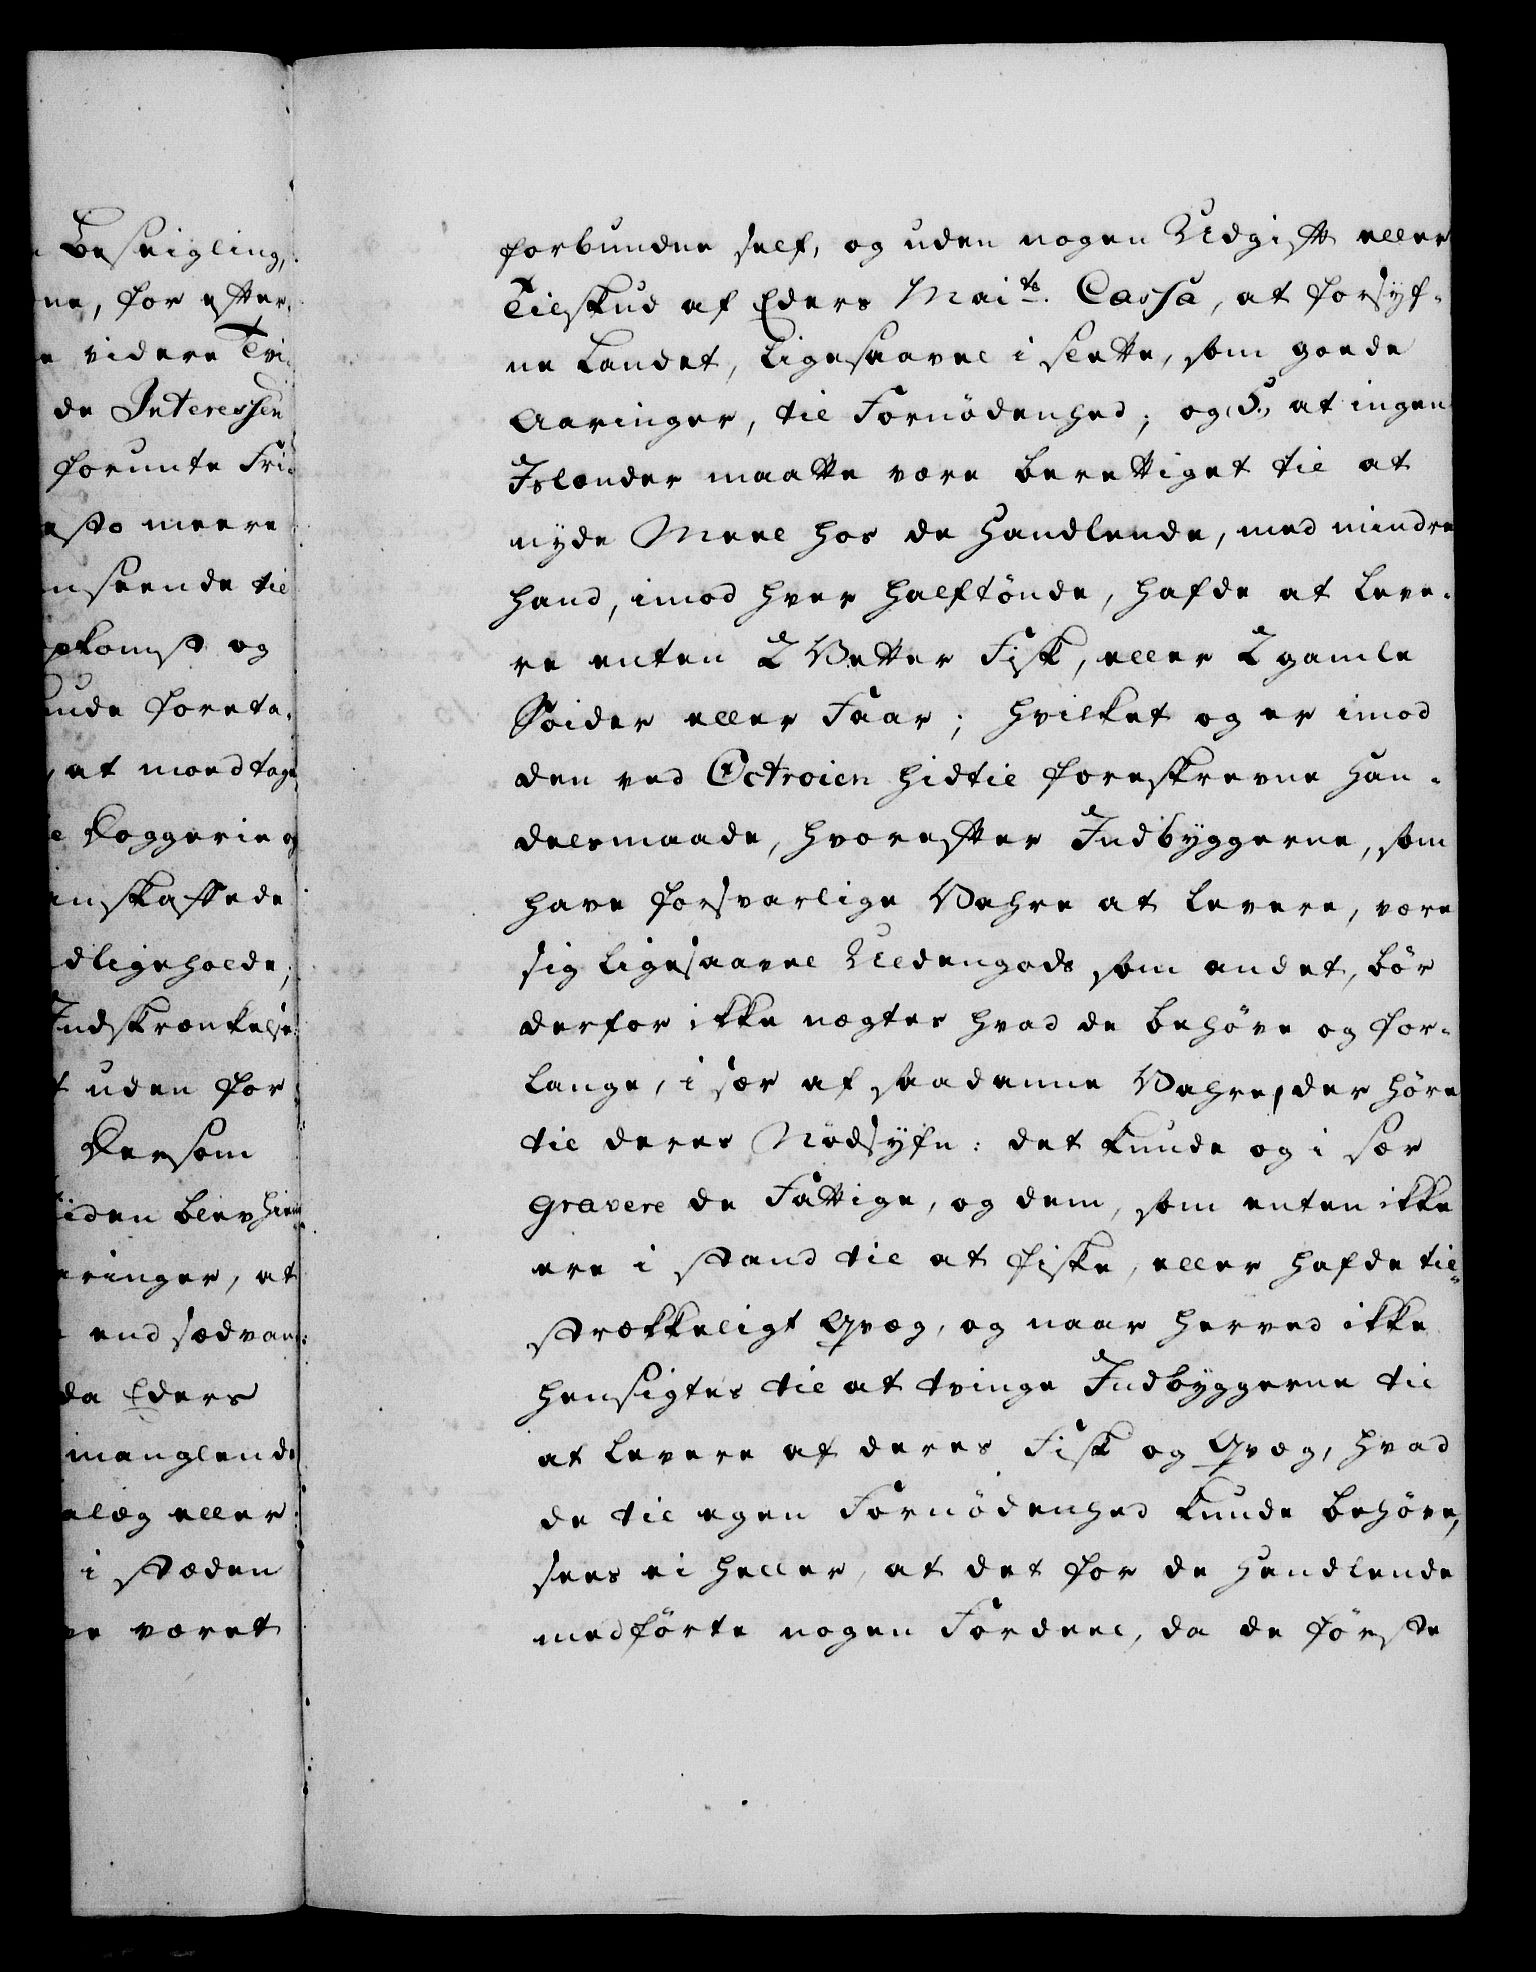 Beseigling,
ne, for efter-
videre Tvi-
de Interessen
forunte Fri-
esto meere
nseende til
pkomst og
unde foreta-
, at moedtage
Roggerie og
anskaffede
dligeholde;
Indskrænkelse
t uden for
Dersom
tiden blev hiem
aringer, at
end sædvan-
da Eders
manglende
alæg eller
i stæden
ve været
forbunden self, og uden nogen Udgift eller
Tilskud af Eders Mai.ts Cassa, at forsyf-
ne Landet, ligesaavel i slette, som goede
Aaringer, til Fornødenhed; og, 5., at ingen
Islænder maatte være berettiget til at
nyde Meel hos de Handlende, med mindre
hand, imod hver halftønde, hafde at leve-
re enten 2 Vetter Fisk, eller 2 gamle
Soider eller Faar; hvilket og er imod
den ved Octroien hidtil foreskrevne Han-
delsmaade, hvorefter Indbyggerne, som
have forsvarlige Vahre at levere, være
sig ligesaavel Uldengods som andet, bør
derfor ikke nægtes hvad de behøve og for-
lange, i sær af saadanne Vahre, der høre
til deres Nødsyfn: det kunde og i sær
gravere de Fattige, og dem, som enten ikke
ere i stand til at fiske, eller hafde til-
strækkeligt Qvæg, og naar herved ikke
hensigtes til at tvinge Indbyggerne til
at levere af deres Fisk og Qvæg, hvad
de til egen Fornødenhed kunde behøve,
sees ei heller, at det for de Handlende
medførte nogen Fordeel, da de første